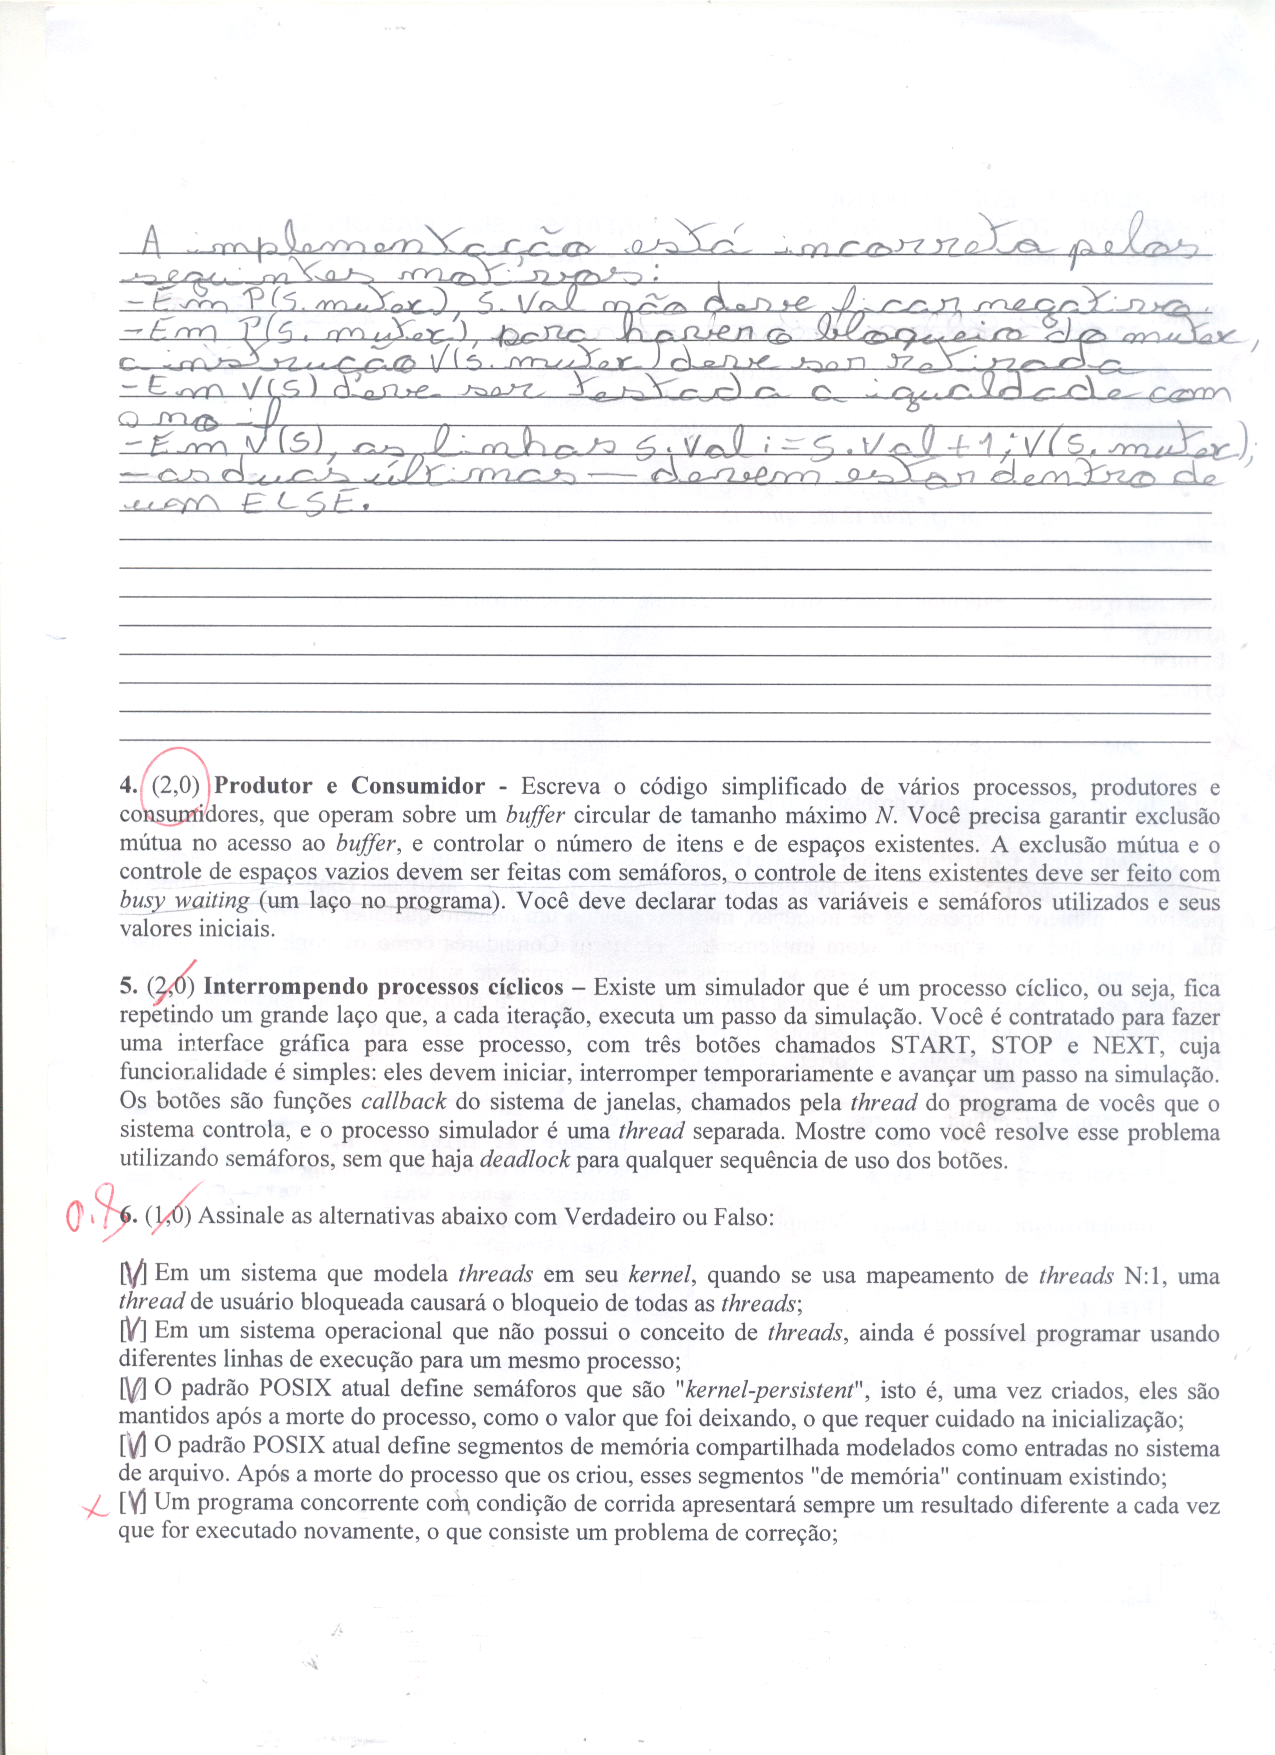 A implementação está incorreta pelos
seguintes motivos:
- Em P(S.mutex), S.Val não deve ficar negativo.
- Em P(S.mutex), para haver o bloqueio do mutex,
a instrução V(S.mutex) deve ser retirada
- Em V(S) deve ser testada a igualdade com
o no if
- Em V(S), as linhas S.Val:=S.Val+1;V(S.mutex);
— as duas últimas — devem estar dentro de
um ELSE.
4. (2,0) Produtor e Consumidor - Escreva o código simplificado de vários processos, produtores e
consumidores, que operam sobre um buffer circular de tamanho máximo N. Você precisa garantir exclusão
mútua no acesso ao buffer, e controlar o número de itens e de espaços existentes. A exclusão mútua e o
controle de espaços vazios devem ser feitas com semáforos, o controle de itens existentes deve ser feito com
busy waiting (um laço no programa). Você deve declarar todas as variáveis e semáforos utilizados e seus
valores iniciais.
5. (2,0) Interrompendo processos cíclicos – Existe um simulador que é um processo cíclico, ou seja, fica
repetindo um grande laço que, a cada iteração, executa um passo da simulação. Você é contratado para fazer
uma interface gráfica para esse processo, com três botões chamados START, STOP e NEXT, cuja
funcionalidade é simples: eles devem iniciar, interromper temporariamente e avançar um passo na simulação.
Os botões são funções callback do sistema de janelas, chamados pela thread do programa de vocês que o
sistema controla, e o processo simulador é uma thread separada. Mostre como você resolve esse problema
utilizando semáforos, sem que haja deadlock para qualquer sequência de uso dos botões.
0.8 6. (1,0) Assinale as alternativas abaixo com Verdadeiro ou Falso:
[V] Em um sistema que modela threads em seu kernel, quando se usa mapeamento de threads N:1, uma
thread de usuário bloqueada causará o bloqueio de todas as threads;
[V] Em um sistema operacional que não possui o conceito de threads, ainda é possível programar usando
diferentes linhas de execução para um mesmo processo;
[V] O padrão POSIX atual define semáforos que são "kernel-persistent", isto é, uma vez criados, eles são
mantidos após a morte do processo, como o valor que foi deixando, o que requer cuidado na inicialização;
[V] O padrão POSIX atual define segmentos de memória compartilhada modelados como entradas no sistema
de arquivo. Após a morte do processo que os criou, esses segmentos "de memória" continuam existindo;
x [V] Um programa concorrente com condição de corrida apresentará sempre um resultado diferente a cada vez
que for executado novamente, o que consiste um problema de correção;